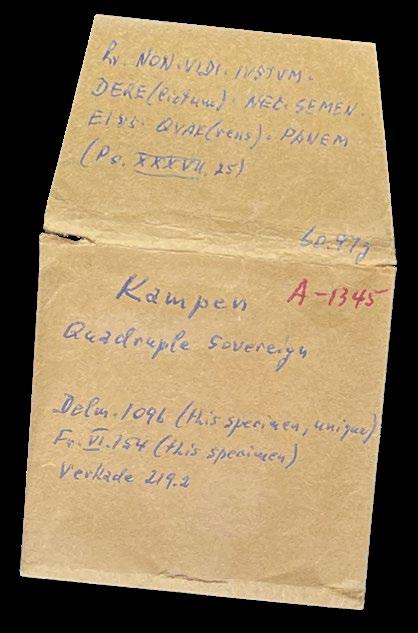 Rv. NON·VIDI·IVSTVM·
DERE(lictum)· NEC·SEMEN·
EIVS· QVAE(rens)· PANEM
(Ps. XXXVII, 25)
60.97g
Kampen A-1345
Quadruple Sovereign
Delm. 1096 (this specimen, unique)
Fr. VI.154 (this specimen)
Verkade 219.2